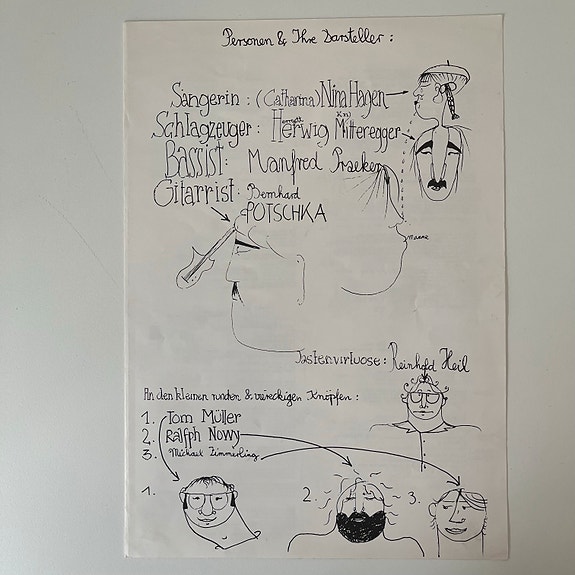 Personen & Ihre Darsteller :
Sängerin : (Catharina) Nina Hagen
Schlagzeuger : Herwig Mitteregger
Bassist : Manfred Praeker
Gitarrist : Bernhard
POTSCHKA
manne
Tastenvirtuose : Reinhold Heil
An den kleinen runden & viereckigen Knöpfen :
1. Tom Müller
2. Ralfph Nowy
3. Michael Zimmerling
1.
2.
3.